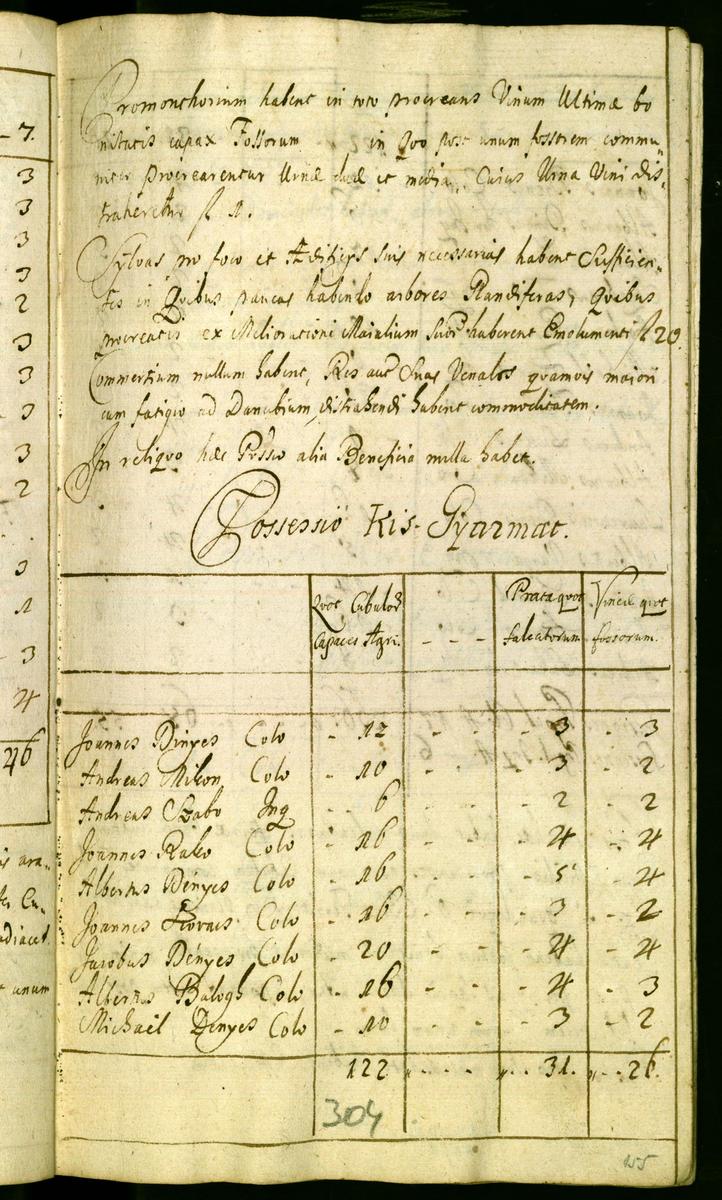 - 7.
3
3
3
3
2
3
3
3
3
2
3
1
- 3
4
46
is ara-
adiacet
unum
Promonthorium habent in toto procreans Vinum Ultimæ bo
nitatis capax Fossorum in Quo post unum fossorem commu-
niter procrearentur Urnæ duæ et media, Cuius Urna Vini dis-
traheretur f 1.
Sylvas pro foco et Ædificijs suis necessarias habent Sufficien-
tes in Quibus paucas habendo arbores Glandiferas, Quibus
procreatis ex Melioratione Maialium suor haberent Emolumenti f 20.
Commertium nullum habent, Res aut Suas Venales quamvis maiori
cum fatigio ad Danubium distrahendi habent commoditatem.
In reliquo hæc Possio alia Beneficia nulla habet.
Possessio Kis-Gyarmat.
Quot Cubulor Capaces Agri. - - - Prata quot falcatorum Vineæ quot fossorum.
Joannes Dinyes Colo - 12 - - - 3 - 3
Andreas Mikon Colo - 10 - - - 3 - 2
Andreas Szabo Inq - - 6 - - - 2 - 2
Joannes Rako Colo - 16 - - - 4 - 4
Albertus Dényes Colo - 16 - - - 5 - 4
Joannes Kovacs Colo - 16 - - - 3 - 2
Jacobus Dényes Colo - 20 - - - 4 - 4
Albertus Balogh Colo - 16 - - - 4 - 3
Michael Denyes Colo - 10 - - - 3 - 2
122 „ - - - „ - - 31. „ - - 26.
304
155